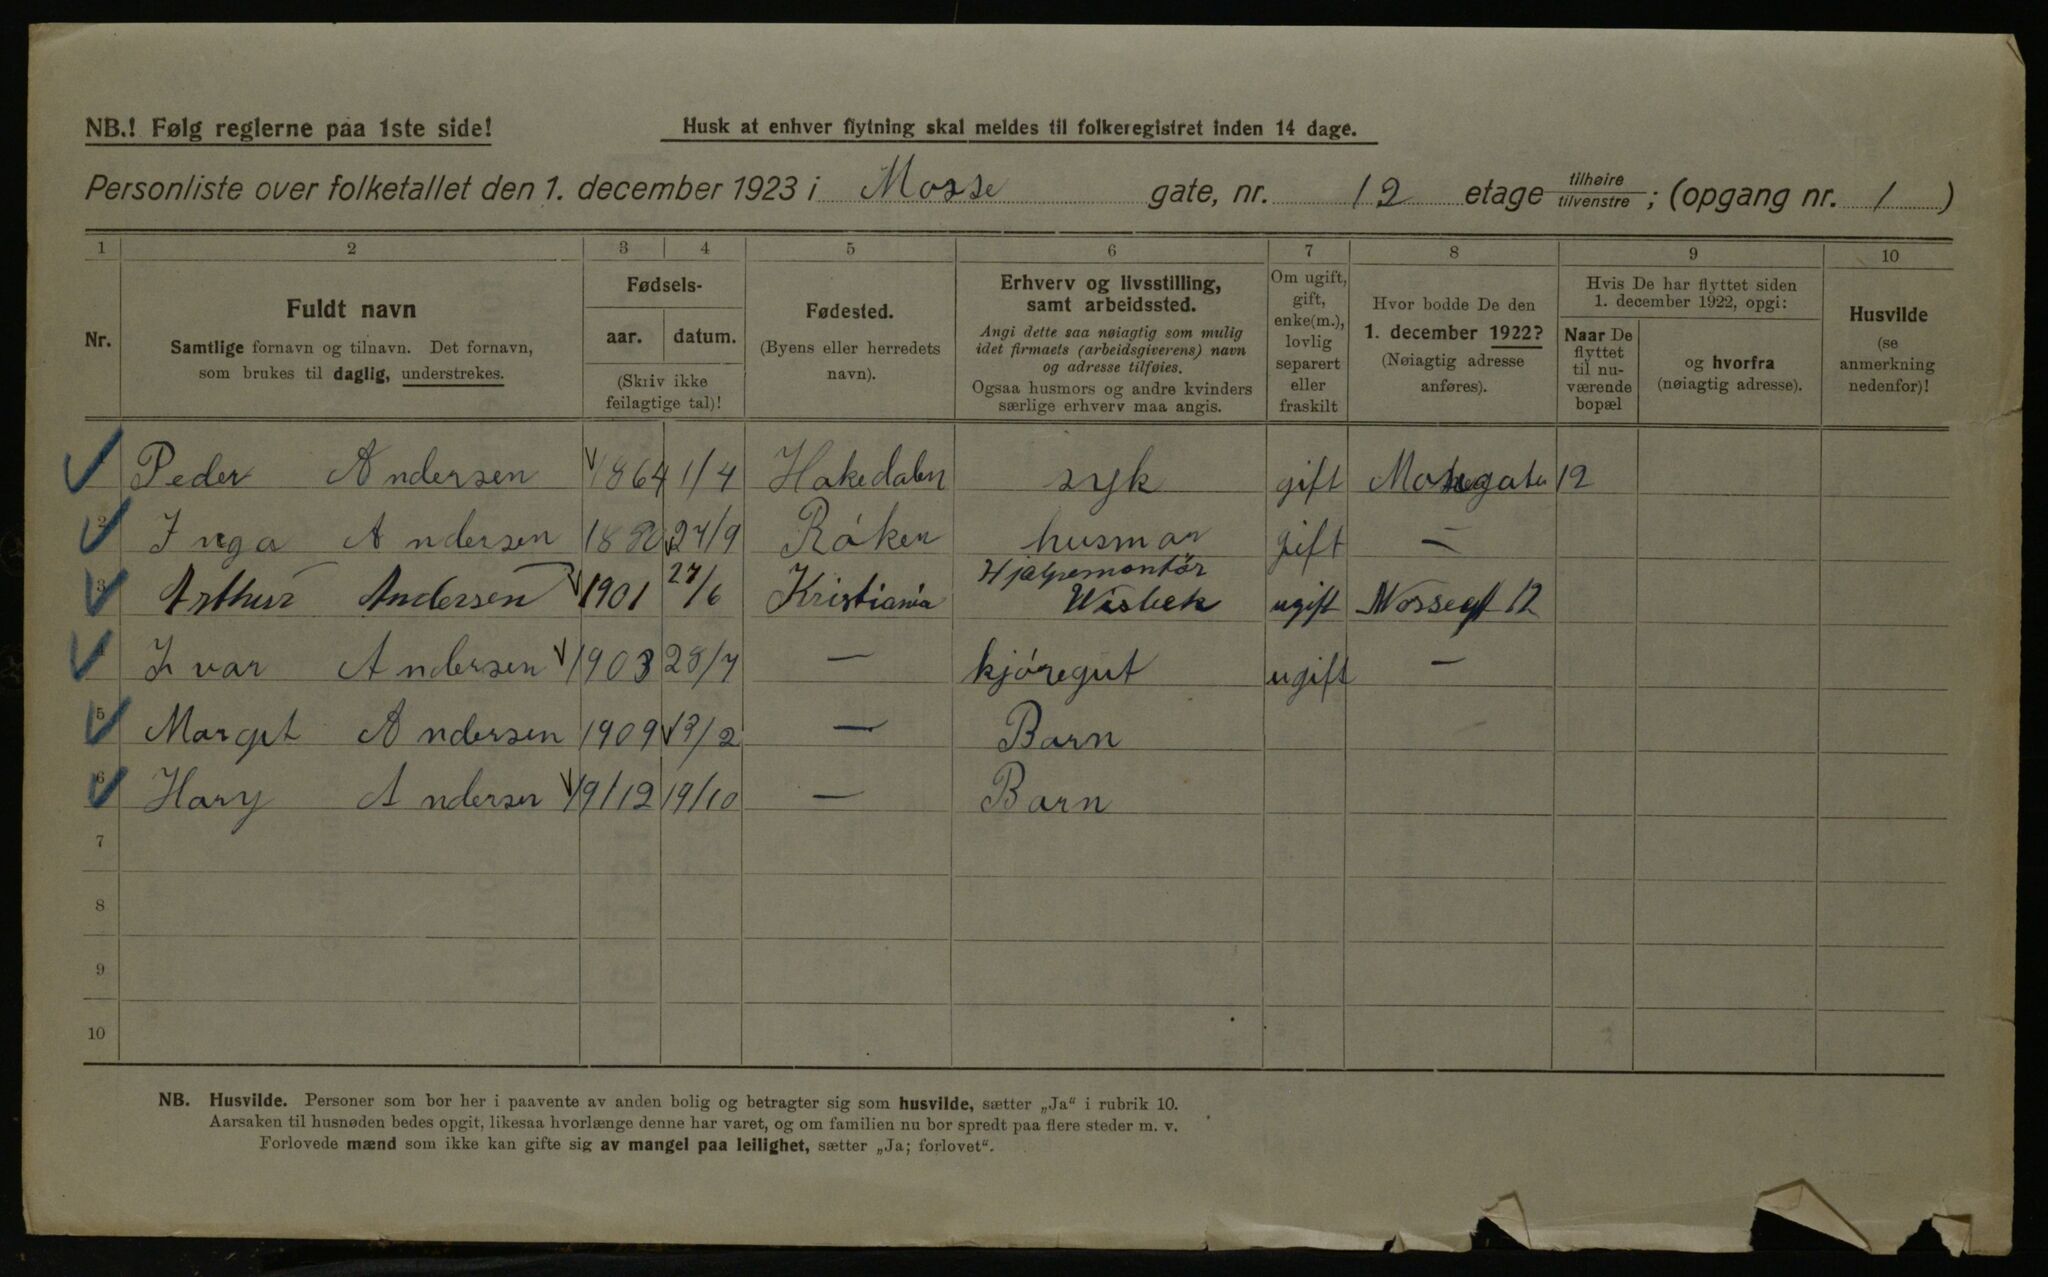 NB.! Følg reglerne paa 1ste side!
Husk at enhver flytning skal meldes til folkeregistret inden 14 dage.
Personliste over folketallet den 1. december 1923 i Mosse gate, nr. 12 etage tilhøire tilvenstre ; (opgang nr. 1 )
1 2 3 4 5 6 7 8 9 10
Nr.
Fuldt navn
Samtlige fornavn og tilnavn. Det fornavn,
som brukes til daglig, understrekes.
Fødsels-
aar. datum.
(Skriv ikke
feilagtige tal)!
Fødested.
(Byens eller herredets
navn).
Erhverv og livsstilling,
samt arbeidssted.
Angi dette saa nøiagtig som mulig
idet firmaets (arbeidsgiverens) navn
og adresse tilføies.
Ogsaa husmors og andre kvinders
særlige erhverv maa angis.
Om ugift,
gift,
enke(m.),
lovlig
separert
eller
fraskilt
Hvor bodde De den
1. december 1922?
(Nøiagtig adresse
anføres).
Hvis De har flyttet siden
1. december 1922, opgi:
Naar De
flyttet
til nu-
værende
bopæl
og hvorfra
(nøiagtig adresse).
Husvilde
(se
anmerkning
nedenfor)!
Peder Andersen 1864 1/4 Hakedalen syk gift Mossegaten 12
2 Inga Andersen 24/9 Røken husmor gift —
3 Arthur Andersen 1901 27/6 Kristiania Hjelpemontør ugift Mossegt 12
Ivar Andersen 1903 28/7 — kjøregut ugift —
5 Margit Andersen 1909 13/2 — Barn
6 Hary Andersen 1912 19/10 — Barn
7
8
9
10
NB. Husvilde. Personer som bor her i paavente av anden bolig og betragter sig som husvilde, sætter „Ja“ i rubrik 10.
Aarsaken til husnøden bedes opgit, likesaa hvorlænge denne har varet, og om familien nu bor spredt paa flere steder m. v.
Forlovede mænd som ikke kan gifte sig av mangel paa leilighet, sætter „Ja; forlovet“.